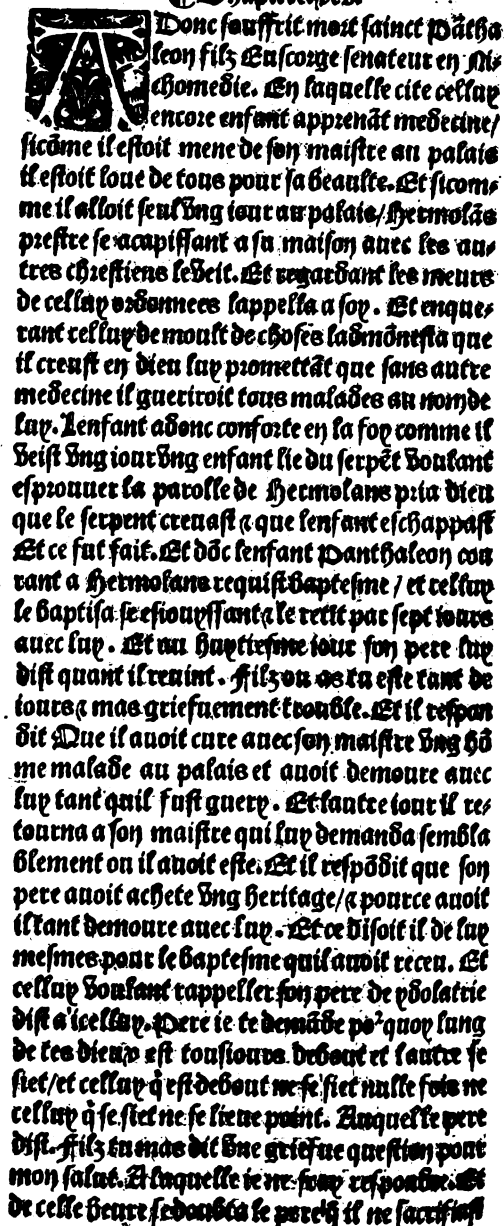 ADonc souffrit mort sainct Pātha
leon filz Euscorge senateur en Ni⸗
chomedie. En laquelle cite celluy
encore enfant apprenāt medecine/
sicōme il estoit mene de son maistre au palais
il estoit loue de tous pour sa beaulte. Et sicom⸗
me il alloit seul vng iour au palais/ Hermolās
prestre se acapissant a sa maison auec les au⸗
tres chrestiens le veit. Et regardant les meurs
de celluy ordonnees lappella a soy. Et enque⸗
rant celluy de moult de choses ladmōnesta que
il creust en dieu luy promettāt que sans autre
medecine il gueriroit tous malades au nom de
luy. Lenfant adonc conforte en la foy comme il
veist vng iour vng enfant lie du serpēt voulant
esprouuer la parolle de Hermolans pria dieu
que le serpent creuast ⁊ que lenfant eschappast
Et ce fut fait. Et dōc lenfant Panthaleon cou
rant a Hermolans requist baptesme / et celluy
le baptisa se esiouyssant ⁊ le retīt par sept iours
auec luy. Et au huytiesme iour son pere luy
dist quant il reuint. Filz ou as tu este tant de
iours ⁊ mas griefuement trouble. Et il respon
dit Que il auoit cure auec son maistre vng hō
me malade au palais et auoit demoure auec
luy tant quil fust guery. Et lautre iour il re⸗
tourna a son maistre qui luy demanda sembla
blement ou il auoit este. Et il respōdit que son
pere auoit achete vng heritage/ ⁊ pource auoit
il tant demoure auec luy. Et ce disoit il de luy
mesmes pour le baptesme quil auoit receu. Et
celluy voulant rappeller son pere de ydolatrie
dist a icelluy. Pere ie te demāde poꝰquoy lung
de tes dieux est tousiours debout et lautre se
siet/ et celluy q̄ est debout ne se siet nulle fois ne
celluy q̄ se siet ne se lieue point. Auquel le pere
dist. Filz tu mas dit vne griefue question pour
mon salut. A laquelle ie ne scay respondre. Et
de celle heure se doubta le pere q̄ il ne sacrifiast